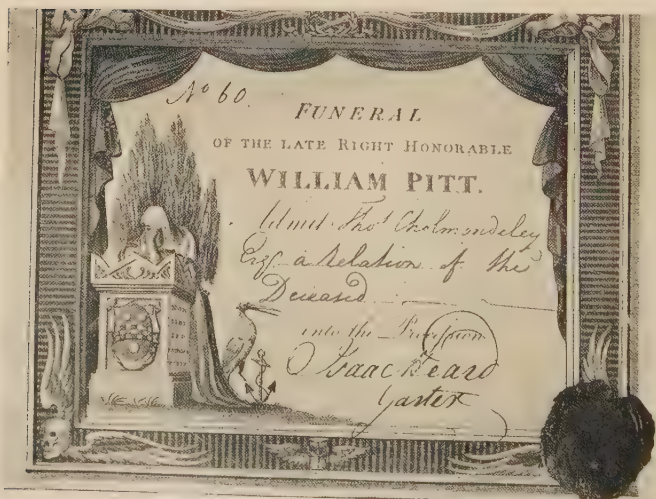 No 60.
FUNERAL
OF THE LATE RIGHT HONORABLE
WILLIAM PITT.
Admit Thos Cholmondeley
Esqr a Relation of the
Deceased
into the Procession
Isaac Heard
Garter